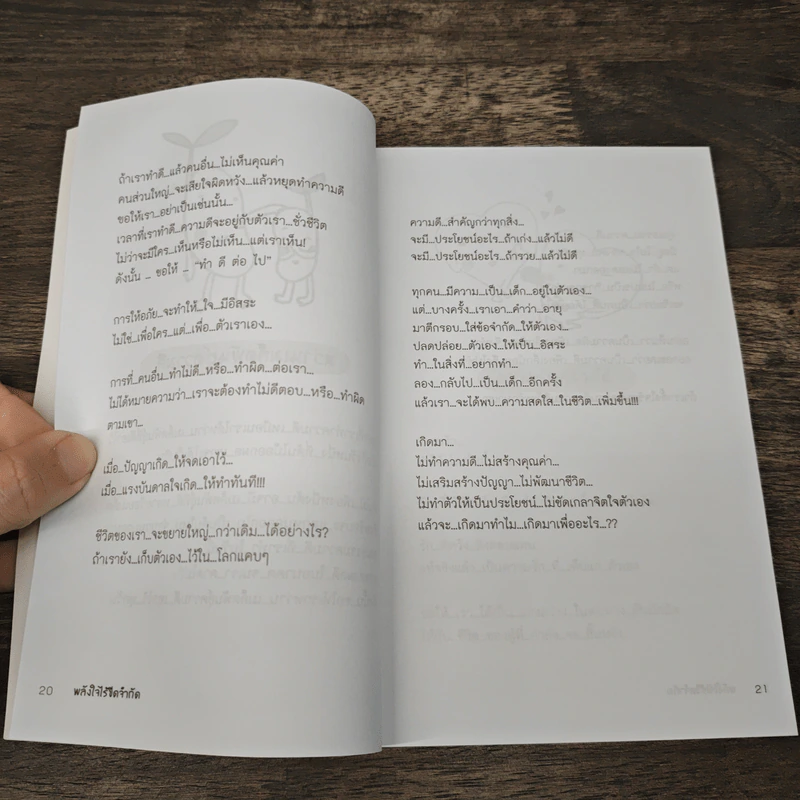 ถ้าเราทำดี...แล้วคนอื่น...ไม่เห็นคุณค่า
คนส่วนใหญ่...จะเสียใจผิดหวัง...แล้วหยุดทำความดี
ขอให้เรา...อย่าเป็นเช่นนั้น...
เวลาที่เราทำดี...ความดีจะอยู่กับตัวเรา...ชั่วชีวิต
ไม่ว่าจะมีใคร...เห็นหรือไม่เห็น...แต่เราเห็น!
ดังนั้น _ ขอให้ _ "ทำ ดี ต่อ ไป"
การให้อภัย...จะทำให้...ใจ...มีอิสระ
ไม่ใช่...เพื่อใคร...แต่...เพื่อ...ตัวเราเอง...
การที่...คนอื่น...ทำไม่ดี...หรือ...ทำผิด...ต่อเรา...
ไม่ได้หมายความว่า...เราจะต้องทำไม่ดีตอบ...หรือ...ทำผิด
ตามเขา...
เมื่อ...ปัญญาเกิด...ให้จดเอาไว้...
เมื่อ...แรงบันดาลใจเกิด...ให้ทำทันที!!!
ชีวิตของเรา...จะขยายใหญ่...กว่าเดิม...ได้อย่างไร?
ถ้าเรายัง...เก็บตัวเอง...ไว้ใน...โลกแคบๆ
20 พลังใจไร้ขีดจำกัด
ความดี...สำคัญกว่าทุกสิ่ง...
จะมี...ประโยชน์อะไร...ถ้าเก่ง...แล้วไม่ดี
จะมี...ประโยชน์อะไร...ถ้ารวย...แล้วไม่ดี
ทุกคน...มีความ...เป็น...เด็ก...อยู่ในตัวเอง...
แต่...บางครั้ง...เราเอา...คำว่า...อายุ
มาตีกรอบ...ใส่ข้อจำกัด...ให้ตัวเอง...
ปลดปล่อย...ตัวเอง...ให้เป็น...อิสระ
ทำ...ในสิ่งที่...อยากทำ...
ลอง...กลับไป...เป็น...เด็ก...อีกครั้ง
แล้วเรา...จะได้พบ...ความสดใส...ในชีวิต...เพิ่มขึ้น!!!
เกิดมา...
ไม่ทำความดี...ไม่สร้างคุณค่า...
ไม่เสริมสร้างปัญญา...ไม่พัฒนาชีวิต...
ไม่ทำตัวให้เป็นประโยชน์...ไม่ขัดเกลาจิตใจตัวเอง
แล้วจะ...เกิดมาทำไม...เกิดมาเพื่ออะไร...??
21